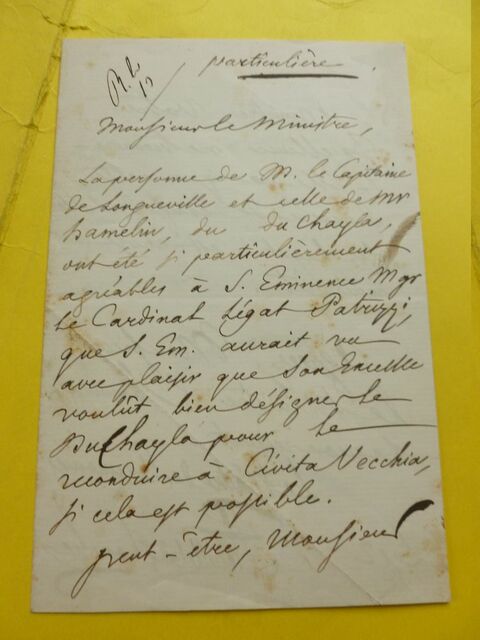 particulière
R. le
12
Monsieur le Ministre,
La personne de M. le Capitaine
de Longueville et celle de Mr
hamelin, du du chayla,
ont été si particulièrement
agréables à S. Eminence Mgr
le Cardinal Légat Patrizzi,
que S. Em. aurait vu
avec plaisir que Son Excelle
voulût bien désigner le
Du Chayla pour le
reconduire à Civita Vecchia,
si cela est possible.
peut-être, Monsieur